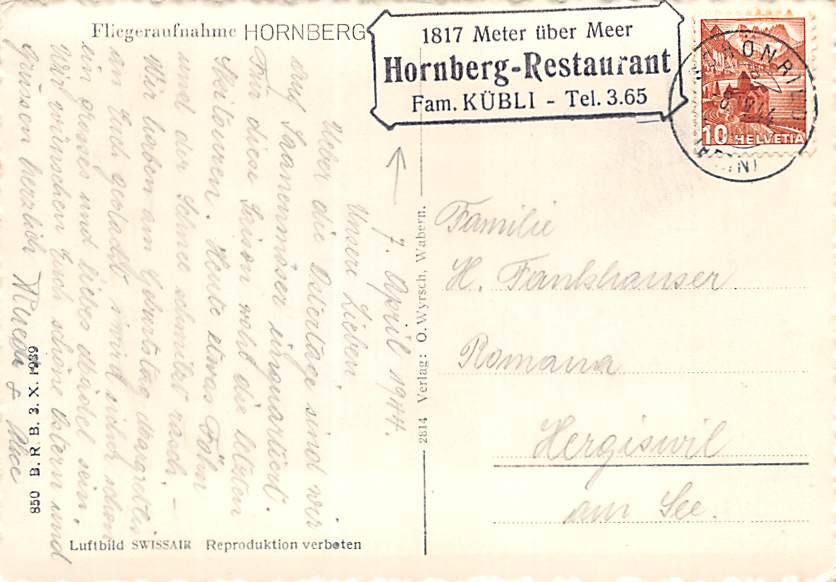 Fliegeraufnahme HORNBERG
1817 Meter über Meer
Hornberg-Restaurant
Fam. KÜBLI - Tel. 3.65
10 HELVETIA
7. April 1944.
Unsere Lieben,
Ueber die Ostertage sind wir
auf Saanenmöser einquartiert.
Für diese Saison wohl die letzten
Skitouren. Heute etwas Föhn
und der Schnee schmilzt rasch. –
Wir haben am Geburtstag
an Euch gedacht, wird schon
ein grosses und liebes sein.
Wir wünschen Euch schöne Ostern und
grüssen herzlich
& Alice
Familie
H. Fankhauser
Romana
Hergiswil
am See.
2814 Verlag: O. Wyrsch, Wabern.
850 B. R. B. 3. X. 1939
Luftbild SWISSAIR Reproduktion verboten